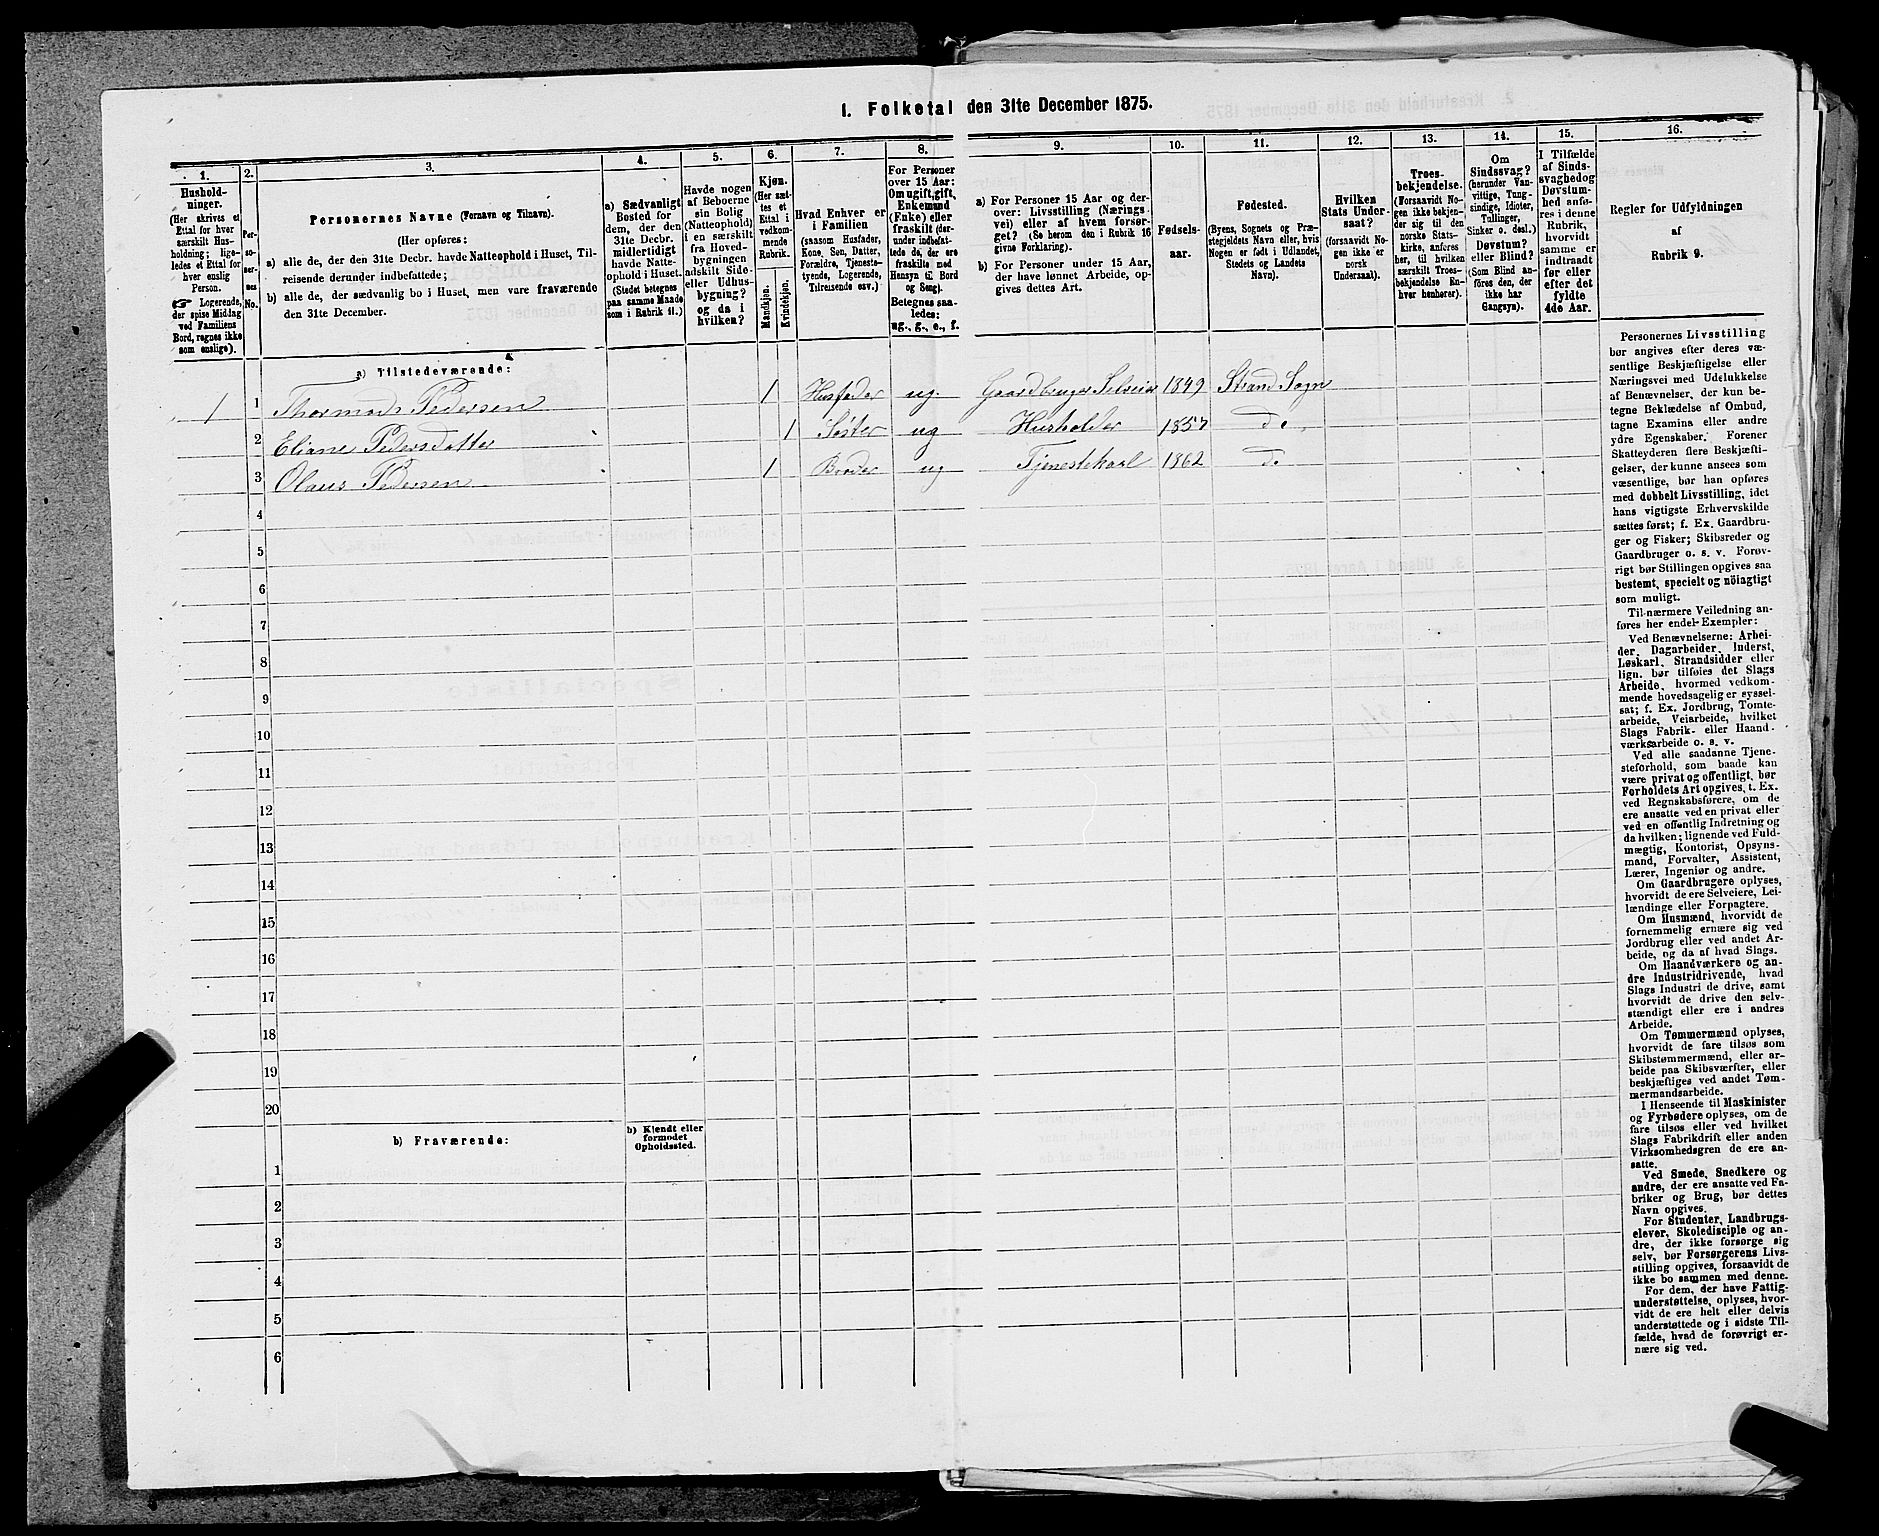 1. Folketal den 31te December 1875.
1.
2.
3.
4.
5.
6.
7.
8.
9.
10.
11.
12.
13.
14.
15.
16.
Hushold-
ninger.
(Her skrives et
Ettal for hver
særskilt Hus-
holdning; lige-
ledes et Ettal for
hver enslig
Person.
☞ Logerende,
der spise Middag
ved Familiens
Bord, regnes ikke
som enslige).
Per-
so-
ner-
nes
No.
Personernes Navne (Fornavn og Tilnavn).
(Her opføres:
a) alle de, der den 31te Decbr. havde Natteophold i Huset, Til-
reisende derunder indbefattede;
b) alle de, der sædvanlig bo i Huset, men vare fraværende
den 31te December.
a) Sædvanligt
Bosted for
dem, der den
31te Decbr.
midlertidigt
havde Natte-
ophold i Huset.
(Stedet betegnes
paa samme Maade
som i Rubrik 11.)
Havde nogen
af Beboerne
sin Bolig
(Natteophold)
i en særskilt
fra Hoved-
bygningen
adskilt Side-
eller Udhus-
bygning?
og da i
hvilken?
Kjøn.
(Her sæt-
tes et
Ettal i
vedkom-
mende
Rubrik.
Mandkjøn.
Kvindekjøn.
Hvad Enhver er
i Familien
(saasom Husfader,
Kone, Søn, Datter,
Forældre, Tjeneste-
tyende, Logerende,
Tilreisende osv.)
For Personer
over 15 Aar:
Om ugift, gift,
Enkemand
(Enke) eller
fraskilt (der-
under indbefat-
tede de, der ere
fraskilte med
Hensyn til Bord
og Seng).
Betegnes saa-
ledes:
ug., g., e., f.
a) For Personer 15 Aar og der-
over: Livsstilling (Nærings-
vei) eller af hvem forsør-
get? (Se herom den i Rubrik 16
givne Forklaring).
b) For Personer under 15 Aar,
der have lønnet Arbeide, op-
gives dettes Art.
Fødsels-
aar.
Fødested.
(Byens, Sognets og Præ-
stegjeldets Navn eller, hvis
Nogen er født i Udlandet,
Stedets og Landets
Navn).
Hvilken
Stats Under-
saat?
(forsaavidt No-
gen ikke er
norsk
Undersaat).
Troes-
bekjendelse.
(Forsaavidt No-
gen ikke bekjen-
der sig til den
norske Stats-
kirke, anføres
her, til hvilken
særskilt Troes-
bekjendelse En-
hver henhører).
Om
Sindssvag?
(herunder Van-
vittige, Tung-
sindige, Idioter,
Tullinger,
Sinker o. desl.)
Døvstum?
eller Blind?
(Som Blind an-
føres den, der
ikke har
Gangsyn).
I Tilfælde
af Sinds-
svaghed og
Døvstum-
hed anfø-
res i denne
Rubrik,
hvorvidt
samme er
indtraadt
før eller
efter det
fyldte
4de Aar.
Regler for Udfyldningen
af
Rubrik 9.
a) Tilstedeværende:
1 1 Thormods Pedersen 1 Husfader ug. Gaardbruger Selveier 1849 Strand Sogn
2 Eliane Pedersdatter 1 Søster ug Husholder 1857 do
3 Olaus Pedersen 1 Broder ug Tjenestekarl 1862 do
4
5
6
7
8
9
10
11
12
13
14
15
16
17
18
19
20
b) Fraværende:
b) Kjendt eller
formodet
Opholdssted.
1
2
3
4
5
6
Personernes Livsstilling
bør angives efter deres væ-
sentlige Beskjæftigelse eller
Næringsvei med Udelukkelse
af Benævnelser, der kun be-
tegne Beklædelse af Ombud,
tagne Examina eller andre
ydre Egenskaber. Forener
Skatteyderen flere Beskjæfti-
gelser, der kunne ansees som
væsentlige, bør han opføres
med dobbelt Livsstilling, idet
hans vigtigste Erhvervskilde
sættes først; f. Ex. Gaardbru-
ger og Fisker; Skibsreder og
Gaardbruger o. s. v. Forøv-
rigt bør Stillingen opgives saa
bestemt, specielt og nöiagtigt
som muligt.
Til nærmere Veiledning an-
føres her endel Exempler:
Ved Benævnelserne: Arbei-
der, Dagarbeider, Inderst,
Løskarl, Strandsidder eller
lign. bør tilføies det Slags
Arbeide, hvormed vedkom-
mende hovedsagelig er syssel-
sat; f. Ex. Jordbrug, Tomte-
arbeide, Veiarbeide, hvilket
Slags Fabrik- eller Haand-
værksarbeide o. s. v.
Ved alle saadanne Tjene-
steforhold, som baade kan
være privat og offentligt, bør
Forholdets Art opgives, t. Ex.
ved Regnskabsførere, om de
ere ansatte ved en privat eller
ved en offentlig Indretning og
da hvilken; lignende ved Fuld-
mægtig, Kontorist, Opsyns-
mand, Forvalter, Assistent,
Lærer, Ingeniør og andre.
Om Gaardbrugere oplyses,
hvorvidt de ere Selveiere, Lei-
lændinge eller Forpagtere.
Om Husmænd, hvorvidt de
fornemmelig ernære sig ved
Jordbrug eller ved andet Ar-
beide, og da af hvad Slags.
Om Haandværkere og an-
dre Industridrivende, hvad
Slags Industri de drive, samt
hvorvidt de drive den selv-
stændigt eller ere i andres
Arbeide.
Om Tømmermænd oplyses,
hvorvidt de fare tilsøs som
Skibstømmermænd, eller ar-
beide paa Skibsværfter, eller
beskjæftiges ved andet Tøm-
mermandsarbeide.
I Henseende til Maskinister
og Fyrbødere oplyses, om de
fare tilsøs eller ved hvilket
Slags Fabrikdrift eller anden
Virksomhedsgren de ere an-
satte.
Ved Smede, Snedkere og
andre, der ere ansatte ved Fa-
briker og Brug, bør dettes
Navn opgives.
For Studenter, Landbrugs-
elever, Skoledisciple og an-
dre, der ikke forsørge sig
selv, bør Forsørgerens Livs-
stilling opgives, forsaavidt de
ikke bo sammen med denne.
For dem, der have Fattig-
understøttelse, oplyses, hvor-
vidt de ere helt eller delvis
understøttede og i sidste Til-
fælde, hvad de forøvrigt er-
nære sig ved.